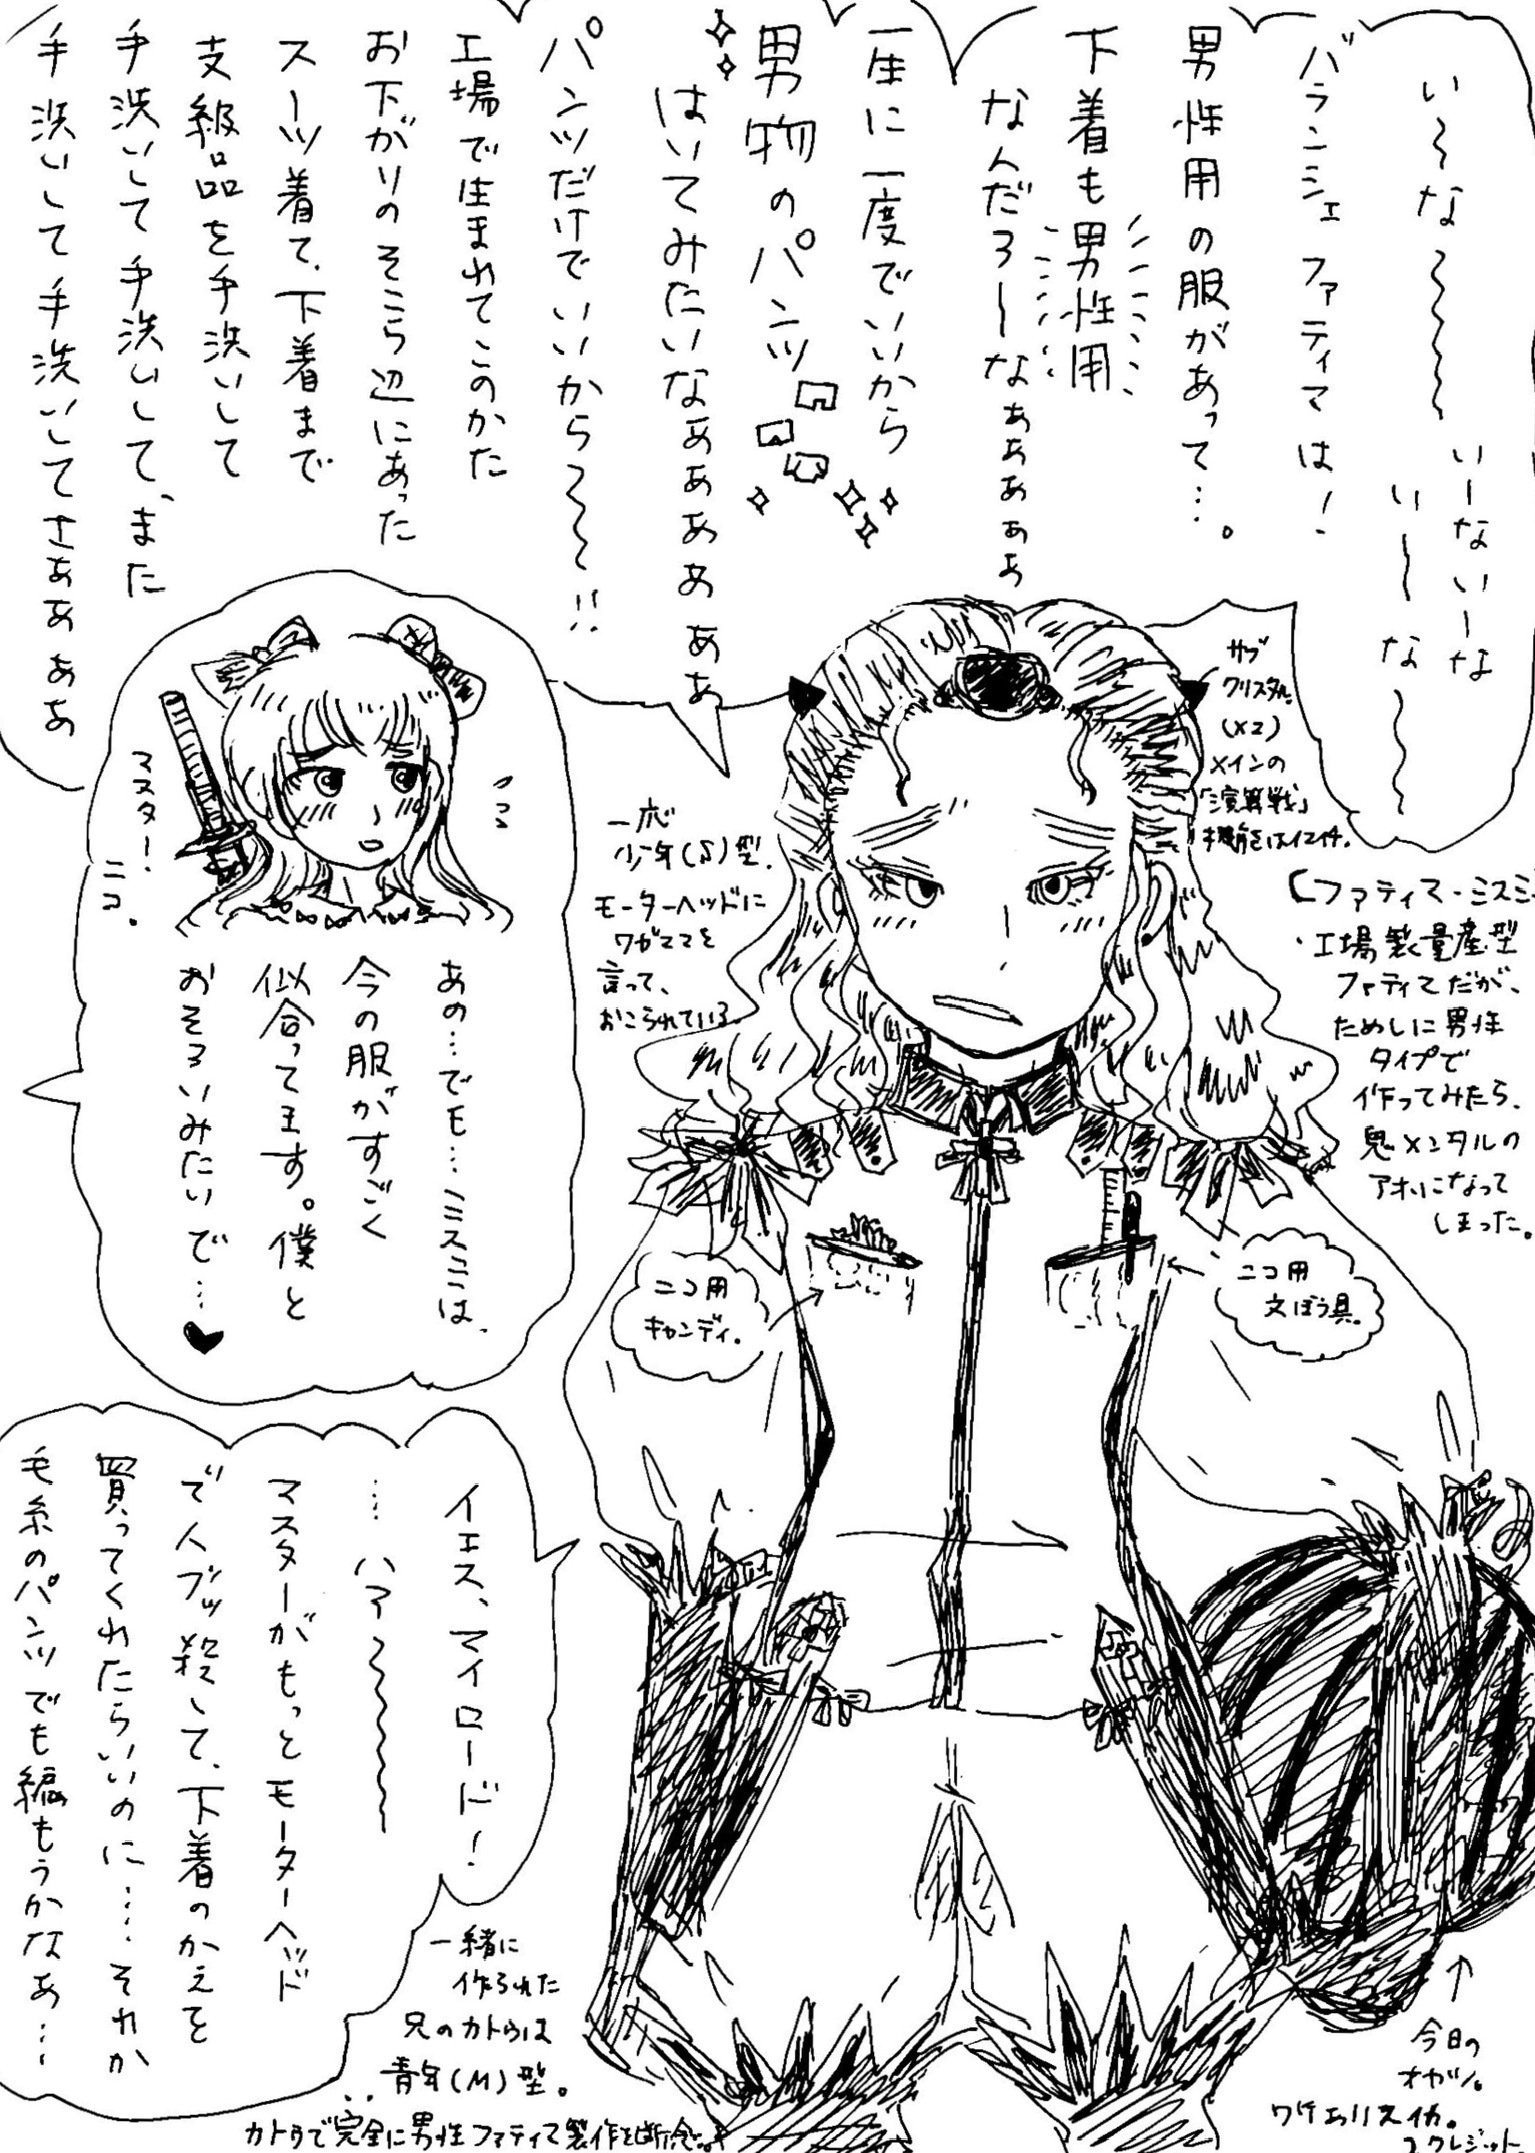 い～な～～～～
いーないーな
い～な～～
バランシェファティマは！
男性用の服があって…。
下着も男性用
なんだろーなぁぁぁぁぁ
一生に一度でいいから
男物のパンツ
はいてみたいなぁぁぁぁぁぁ
パンツだけでいいから～～～!!
工場で生まれてこのかた
お下がりのそこら辺にあった
スーツ着て、下着まで
支給品を手洗いして
手洗いして手洗いして、また
手洗いして手洗いしてさぁぁぁぁ
サブ
クリスタル。
(×2)
メインの
「演算戦」
機能はイマイチ。
一応
少年(S)型。
モーターヘッドに
ワガママを
言って、
おこられている。
【ファティマ・ミスミ
・工場製量産型
ファティマだが、
ためしに男性
タイプで
作ってみたら、
鬼メンタルの
アホになって
しまった。
マスター！
ニコ。
あの…でも…ミスミは、
今の服がすごく
似合ってます。僕と
おそろいみたいで…♥
ニコ用
キャンディ。
ニコ用
文ぼう具。
イエス、マイロード！
…ハァ～～～～
マスターがもっとモーターヘッド
で人ブッ殺して、下着のかえを
買ってくれたらいいのに……それか
毛糸のパンツでも編もうかなぁ…
一緒に
作られた
兄のカトゥは
青年(M)型。
カトゥで完全に男性ファティマ製作を断念。
↑
今日の
オカバン。
ワケエリスイカ。
2クレジット